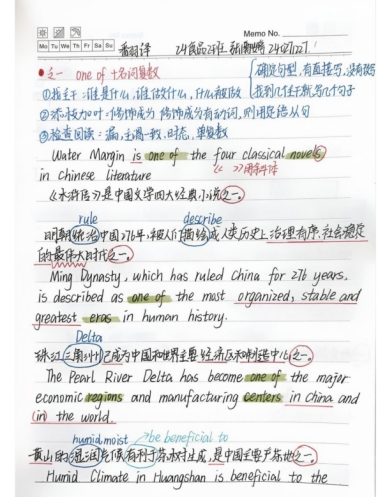 Memo No.
Mo Tu We Th Fr Sa Su
翻译 24食品2班
之一 one of + 名词复数
确定句型,有直接写,没有改写
找到几个主干,就写几个句子
①找主干:谁是什么,谁做什么,什么被做
②添枝加叶:修饰成分 修饰成分有动词,则用定语从句
③检查回读:漏,主谓一致,时态,单复数
Water Margin is one of the four classical novels
in Chinese literature
《》用斜体
《水浒传》是中国文学四大经典小说之一。
rule describe
明朝统治中国276年,被人们描绘成人类历史上治理有序、社会稳定
的最伟大时代之一。
Ming Dynasty, which has ruled China for 276 years,
is described as one of the most organized, stable and
greatest eras in human history.
Delta
珠江三角洲已成为中国和世界主要经济区和制造中心之一。
The Pearl River Delta has become one of the major
economic regions and manufacturing centers in China and
(in) the world.
humid, moist be beneficial to
黄山的湿润气候有利于茶树生成,是中国主要产茶地之一。
Humid Climate in Huangshan is beneficial to the